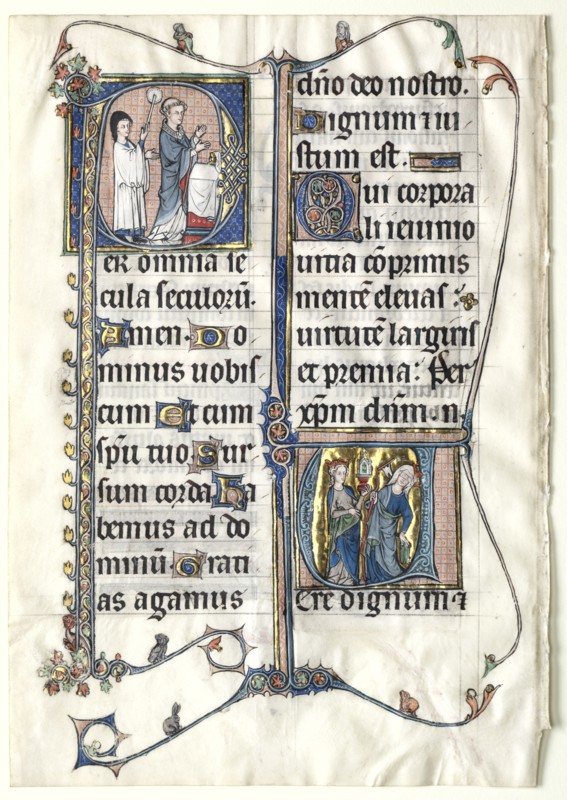 er om̄ia se
cula seculoꝝ̄.
Amen. Do
minus uobis
cum Et cum
sp̄u tuo. Sur
sum corda ha
bemus ad do
minū. Grati
as agamus
dn̄o deo nostro.
Dignum ⁊ iu
stum est.
Qui corpora
li ieiunio
uitia cōprimis
mentē eleuas:
uirtutē largiris
et premia: Per
xp̄m dn̄m. n.
Ere dignum ⁊